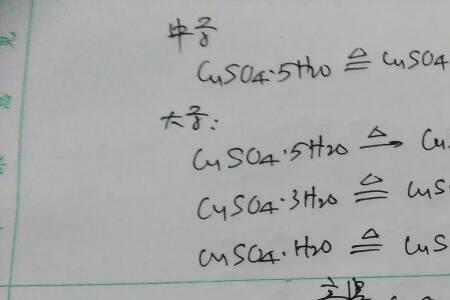 中学
CuSO4·5H2O ≜ CuSO4
大学:
CuSO4·5H2O △→ Cu
CuSO4·3H2O ≜ CuS
CuSO4·H2O ≜ CuS